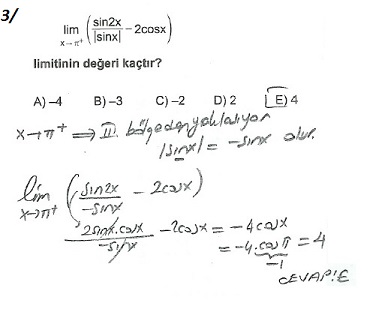 3/
lim x→π⁺ (sin2x/|sinx| - 2cosx)
limitinin değeri kaçtır?
A) -4 B) -3 C) -2 D) 2 E) 4
x→π⁺ ⟹ III. bölgeden yaklaşıyor
|sinx| = -sinx olur.
lim x→π⁺ (sin2x/-sinx - 2cosx)
2sinx.cosx/-sinx - 2cosx = -4cosx
= -4.cosπ = 4
-1
CEVAP:E